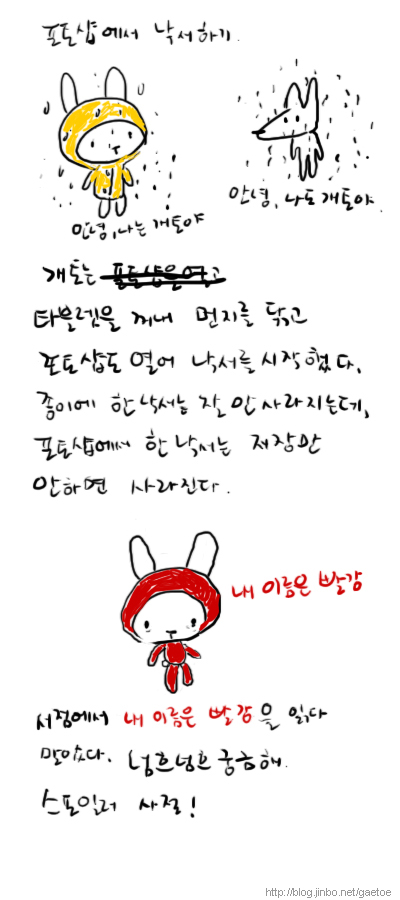 포토샵에서 낙서하기.
안녕, 나는 개토야
안녕, 나도 개토야.
개토는 포토샵을 열고
타블렛을 꺼내 먼지를 닦고
포토샵도 열어 낙서를 시작했다.
종이에 한 낙서는 잘 안 사라지는데,
포토샵에서 한 낙서는 저장만
안하면 사라진다.
내 이름은 빨강
서점에서 내 이름은 빨강을 읽다
말았다. 넘흐넘흐 궁금해.
스포일러 사절!
http://blog.jinbo.net/gaetoe